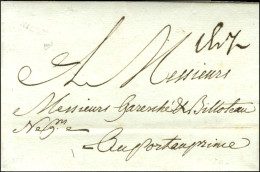 A Messieurs
Messieurs Garesché & Billoteau
Neg.ts
Au Port au prince